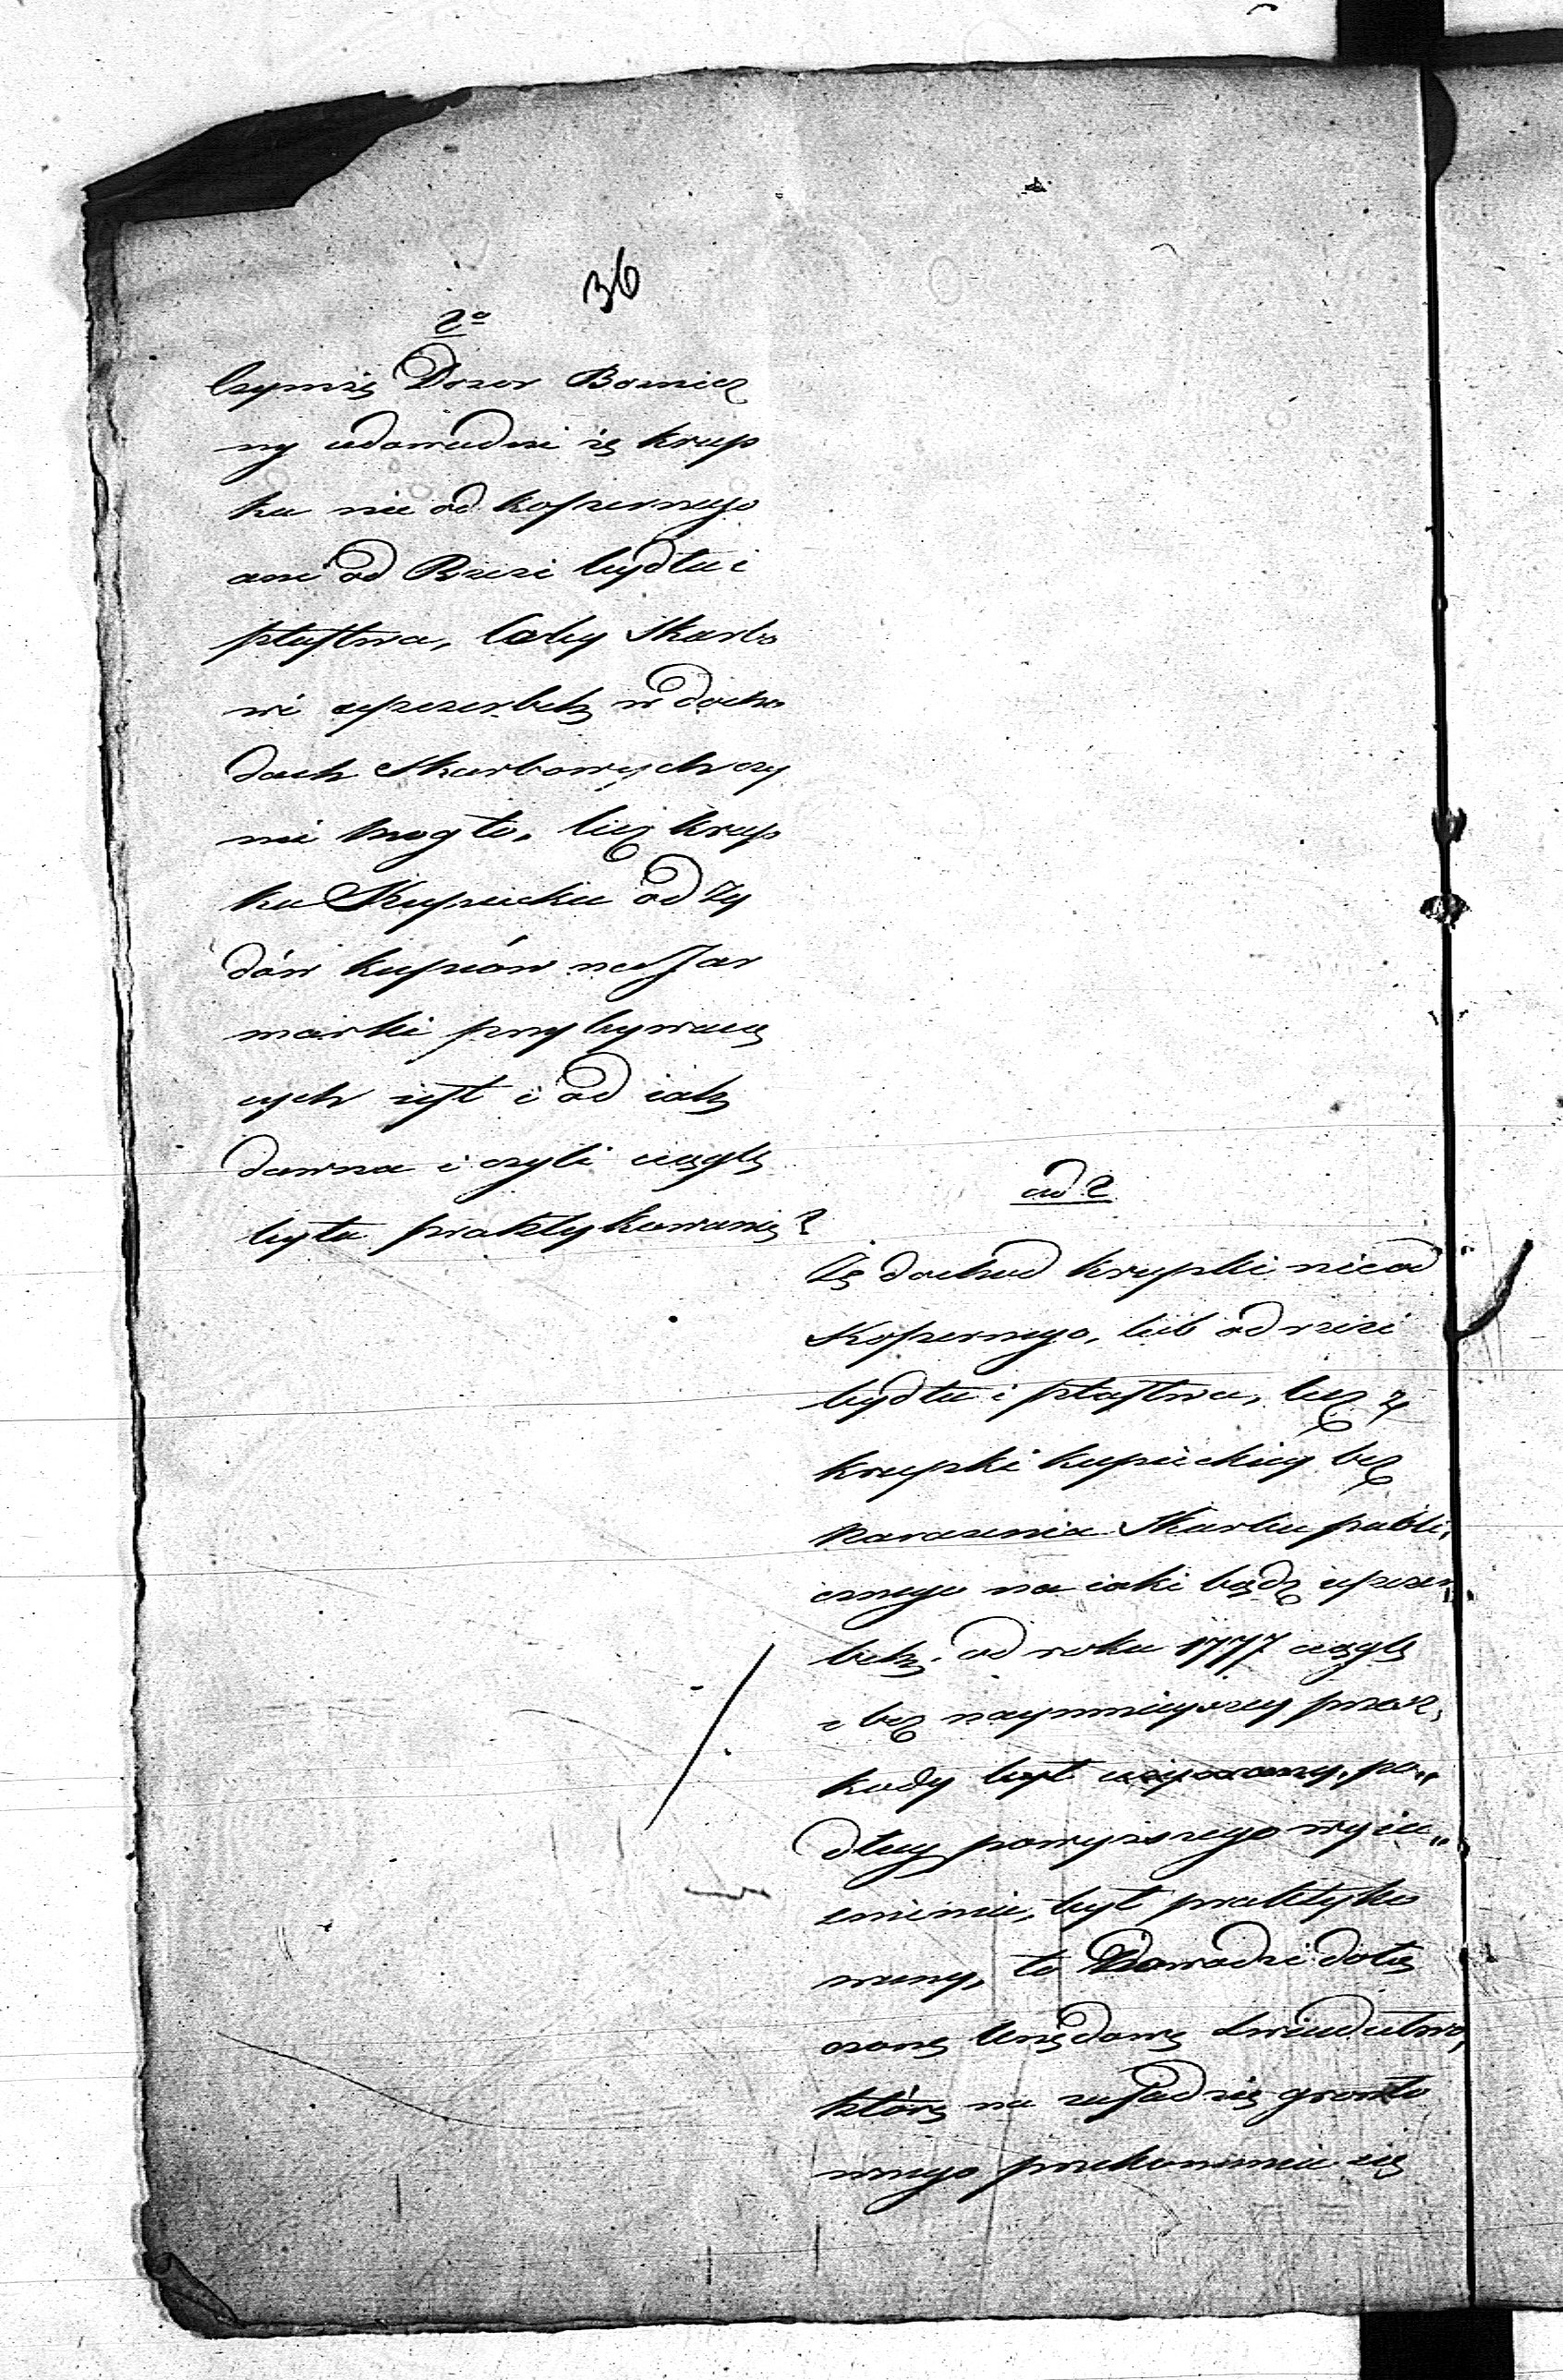 36
2o
Czymże Dozor Bożnicz
ny udowodni że krup
ka nie od koszernego
ani od Rzezi bydła i
ptastwa, coby Skarbo
wi uszczerbek w docho
dach Skarbowych czy
nić mogło, lecz krup
ka Kupiecka od Ży
dów kupców na Jar
marki przybywaią
cych iest i od iak
dawna i czyli ciągle
była praktykowaną?
ad 2
Że dochod krupki nie od
Koszernego, lub od rzezi
bydła i ptastwa, lecz z
krupki kupieckiey bez
narażenia Skarbu publi,
cznego na iaki bądź uszczer„
bek, od roku 1777 ciągle
i bez naymnieyszey przesz,
kody był używany, po„
dług powyższego wyia„
śnienia, był praktyko
wany, to dowodzi dołą
czone Urzędowe Swiadectwo,
które na zasadzie grunto
wnego przekonania się